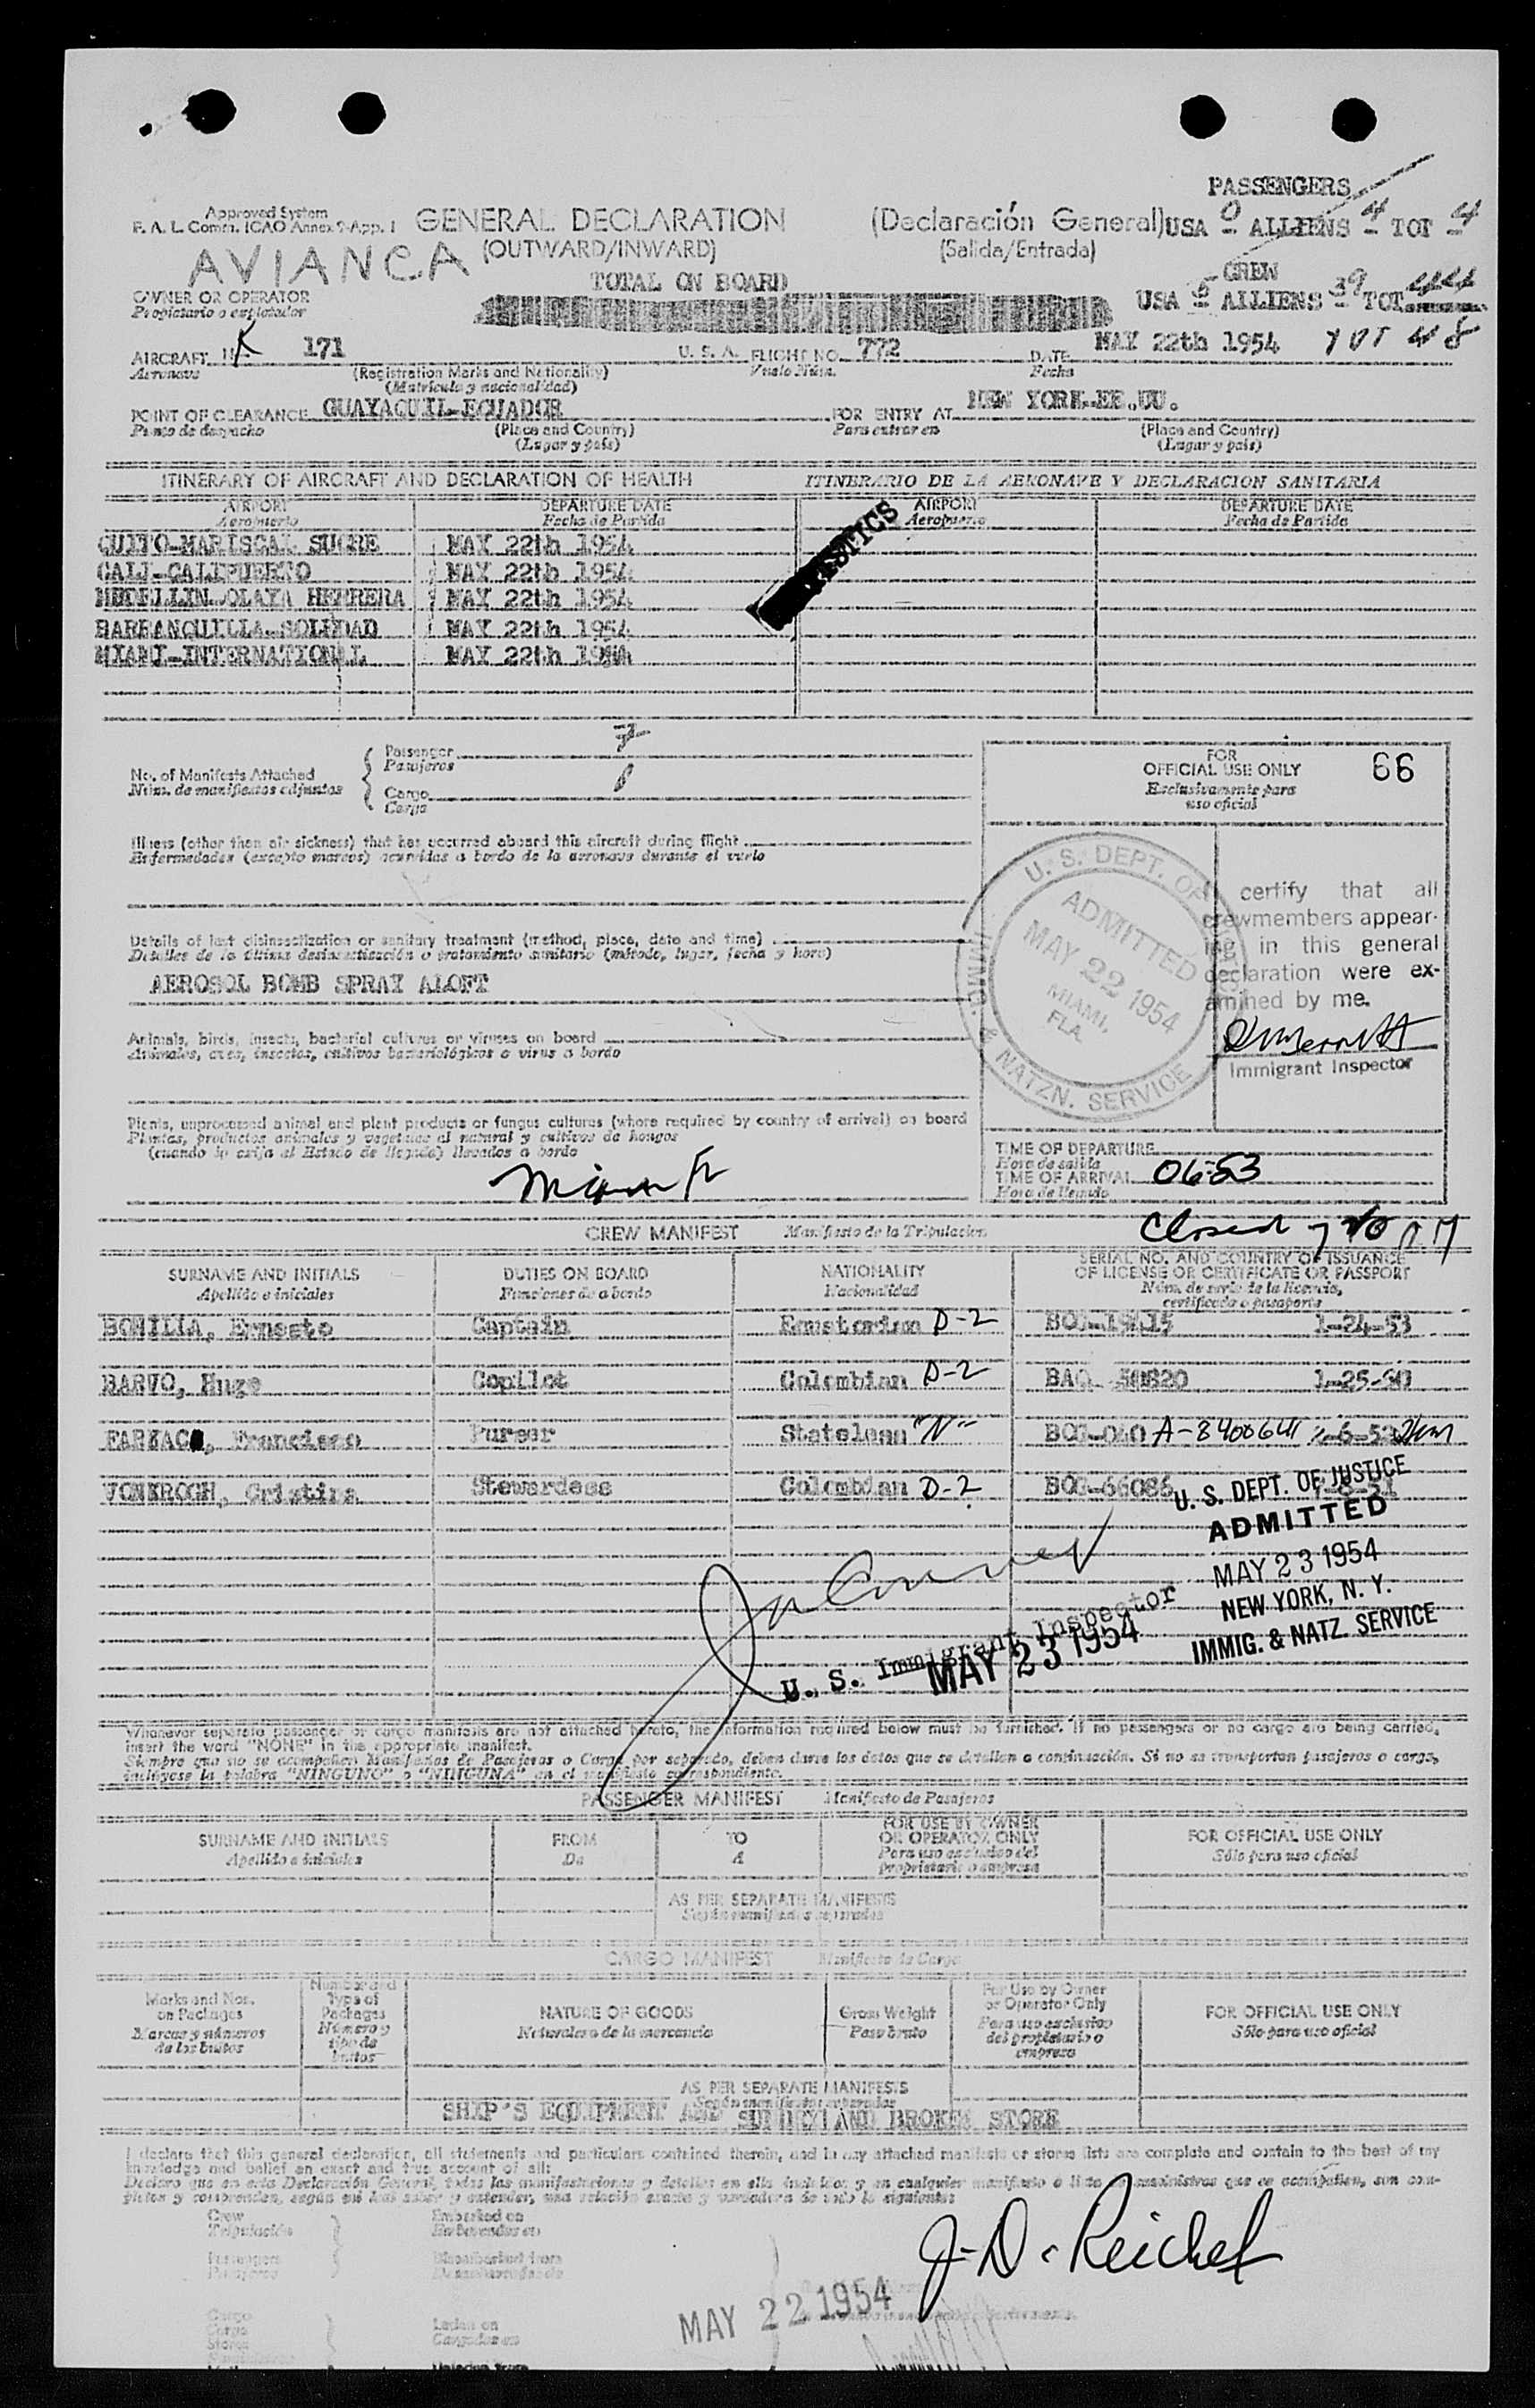 PASSENGERS
Approved System
F. A. L. Comm. ICAO Annex 9-App. 1
GENERAL DECLARATION
(Declaración General)
USA 0 ALLIENS 4 TOT 4
(OUTWARD/INWARD)
(Salida/Entrada)
AVIANCA
TOTAL ON BOARD
CREW
OWNER OR OPERATOR
Propietario o explotador
USA 5 ALLIENS 39 TOT 44
AIRCRAFT HK 171
U. S. A. FLIGHT NO. 772
DATE MAY 22th 1954
TOT 48
Aeronave
(Registration Marks and Nationality)
Vuelo Núm.
Fecha
(Matrícula y nacionalidad)
POINT OF CLEARANCE GUAYAQUIL-ECUADOR
FOR ENTRY AT NEW YORK-EE.UU.
Punto de despacho
(Place and Country)
Para entrar en
(Place and Country)
(Lugar y país)
(Lugar y país)
ITINERARY OF AIRCRAFT AND DECLARATION OF HEALTH
ITINERARIO DE LA AERONAVE Y DECLARACION SANITARIA
AIRPORT
DEPARTURE DATE
AIRPORT
DEPARTURE DATE
Aeropuerto
Fecha de Partida
Aeropuerto
Fecha de Partida
QUITO-MARISCAL SUCRE MAY 22th 1954
CALI-CALIPUERTO MAY 22th 1954
MEDELLIN-OLAYA HERRERA MAY 22th 1954
BARRANQUILLA-SOLEDAD MAY 22th 1954
MIAMI-INTERNATIONAL MAY 22th 1954
No. of Manifests Attached
Núm. de manifiestos adjuntos
Passenger 7
Pasajeros
Cargo
Carga
FOR
OFFICIAL USE ONLY
66
Exclusivamente para
uso oficial
Illness (other than air sickness) that has occurred aboard this aircraft during flight
Enfermedades (excepto mareos) ocurridas a bordo de la aeronave durante el vuelo
Details of last disinsectization or sanitary treatment (method, place, date and time)
Detalles de la última desinsectización o tratamiento sanitario (método, lugar, fecha y hora)
AEROSOL BOMB SPRAY ALOFT
Animals, birds, insects, bacterial cultures or viruses on board
Animales, aves, insectos, cultivos bacteriológicos o virus a bordo
Plants, unprocessed animal and plant products or fungus cultures (where required by country of arrival) on board
Plantas, productos animales y vegetales al natural y cultivos de hongos
(cuando lo exija el Estado de llegada) llevados a bordo
U. S. DEPT. OF
IMMIG. & NATZN. SERVICE
ADMITTED
MAY 22 1954
MIAMI,
FLA.
certify that all
crewmembers appear-
ing in this general
declaration were ex-
amined by me.
Immigrant Inspector
TIME OF DEPARTURE
Hora de salida
TIME OF ARRIVAL 0653
Hora de llegada
CREW MANIFEST
Manifiesto de la Tripulación
Closed
SURNAME AND INITIALS
DUTIES ON BOARD
NATIONALITY
SERIAL NO. AND COUNTRY OF ISSUANCE
OF LICENSE OR CERTIFICATE OR PASSPORT
Apellido e iniciales
Funciones de a bordo
Nacionalidad
Núm. de serie de la licencia,
certificado o pasaporte
BONILLA, Ernesto Captain D-2 1-24-53
BARVO, Hugo Copilot Colombian D-2 BAQ
Francisco Purser Stateless "N" A-8400641
Cristina Stewardess Colombian D-2 BOG-66086
U. S. DEPT. OF JUSTICE
ADMITTED
MAY 23 1954
NEW YORK, N. Y.
IMMIG. & NATZ. SERVICE
U. S. Immigrant Inspector
MAY 23 1954
Whenever separate passenger or cargo manifests are not attached hereto, the information required below must be furnished. If no passengers or no cargo are being carried,
insert the word "NONE" in the appropriate manifest.
Siempre que no se acompañen Manifiestos de Pasajeros o Carga por separado, deben darse los datos que se detallan a continuación. Si no se transportan pasajeros o carga,
inclúyase la palabra "NINGUNO" o "NINGUNA" en el manifiesto correspondiente.
PASSENGER MANIFEST
Manifiesto de Pasajeros
SURNAME AND INITIALS
FROM
TO
FOR USE BY OWNER
OR OPERATOR ONLY
FOR OFFICIAL USE ONLY
Apellido e iniciales
De
A
Para uso exclusivo del
propietario o empresa
Sólo para uso oficial
AS PER SEPARATE MANIFESTS
Según manifiestos separados
CARGO MANIFEST
Manifiesto de Carga
Marks and Nos.
on Packages
Marcas y números
de los bultos
Number and
Type of
Packages
Número y
tipo de
bultos
NATURE OF GOODS
Naturaleza de la mercancía
Gross Weight
Peso bruto
For Use by Owner
or Operator Only
Para uso exclusivo
del propietario o
empresa
FOR OFFICIAL USE ONLY
Sólo para uso oficial
AS PER SEPARATE MANIFESTS
Según manifiestos separados
SHIP'S EQUIPMENT AND SUNDRY AND BROKEN STORE
I declare that this general declaration, all statements and particulars contained therein, and in any attached manifests or stores lists are complete and contain to the best of my
knowledge and belief an exact and true account of all:
Declaro que en esta Declaración General, todas las manifestaciones y detalles en ella incluidos y en cualquier manifiesto o lista de suministros que se acompañen, son com-
pletos y comprenden, según mi leal saber y entender, una relación exacta y verdadera de todo lo siguiente:
Crew
Tripulación
Embarked on
Embarcados en
Passengers
Pasajeros
Disembarked from
Desembarcados de
J. D. Reichel
MAY 22 1954
Cargo
Carga
Stores
Laden on
Cargados en
Unladen from